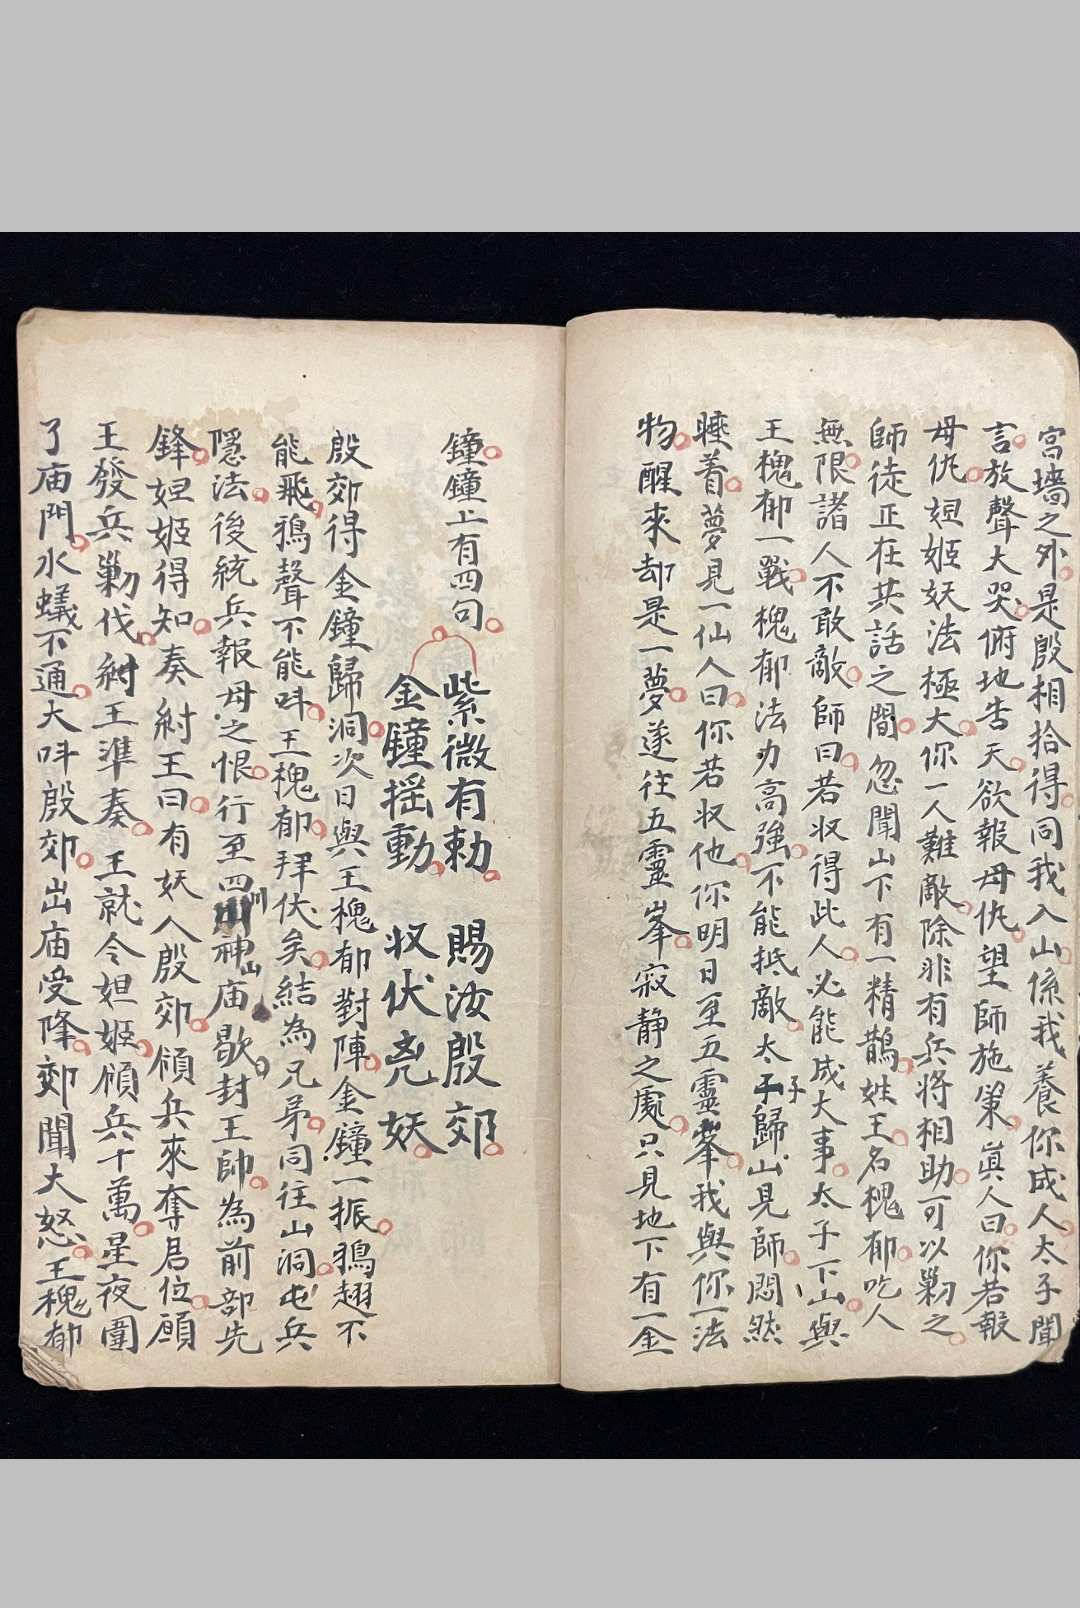 宫墻之外是殷相拾得同我入山係我養你成人太子聞
言放聲大哭俯地告天欲報母仇望師施策眞人曰你若報
母仇妲姬妖法極大你一人難敵除非有兵將相助可以剿之
師徒正在共話之間忽聞山下有一精鵲姓王名槐郁吃人
無限諸人不敢敵師曰若収得此人必能成大事太子下山與
王槐郁一戰槐郁法力高強不能抵敵太子歸山見師悶然
睡着夢見一仙人曰你若収他你明日至五靈峯我與你一法
物醒來却是一夢遂往五靈峯寂静之處只見地下有一金
鐘鐘上有四句
紫微有勅 賜汝殷郊
金鐘揺動 収伏尭妖
殷郊得金鐘歸洞次日與王槐郁對陣金鐘一振鴉翅不
能飛鴉聲不能呌王槐郁拜伏矣結為兄弟同往山洞屯兵
隱法後統兵報母之恨行至四川神山庙歇封王帥為前部先
鋒妲姬得知奏紂王曰有妖人殷郊領兵來奪君位願
王發兵剿伐紂王準奏王就令妲姬領兵十萬星夜圍
了庙門水蟻不通大呌殷郊出庙受降郊聞大怒王槐郁